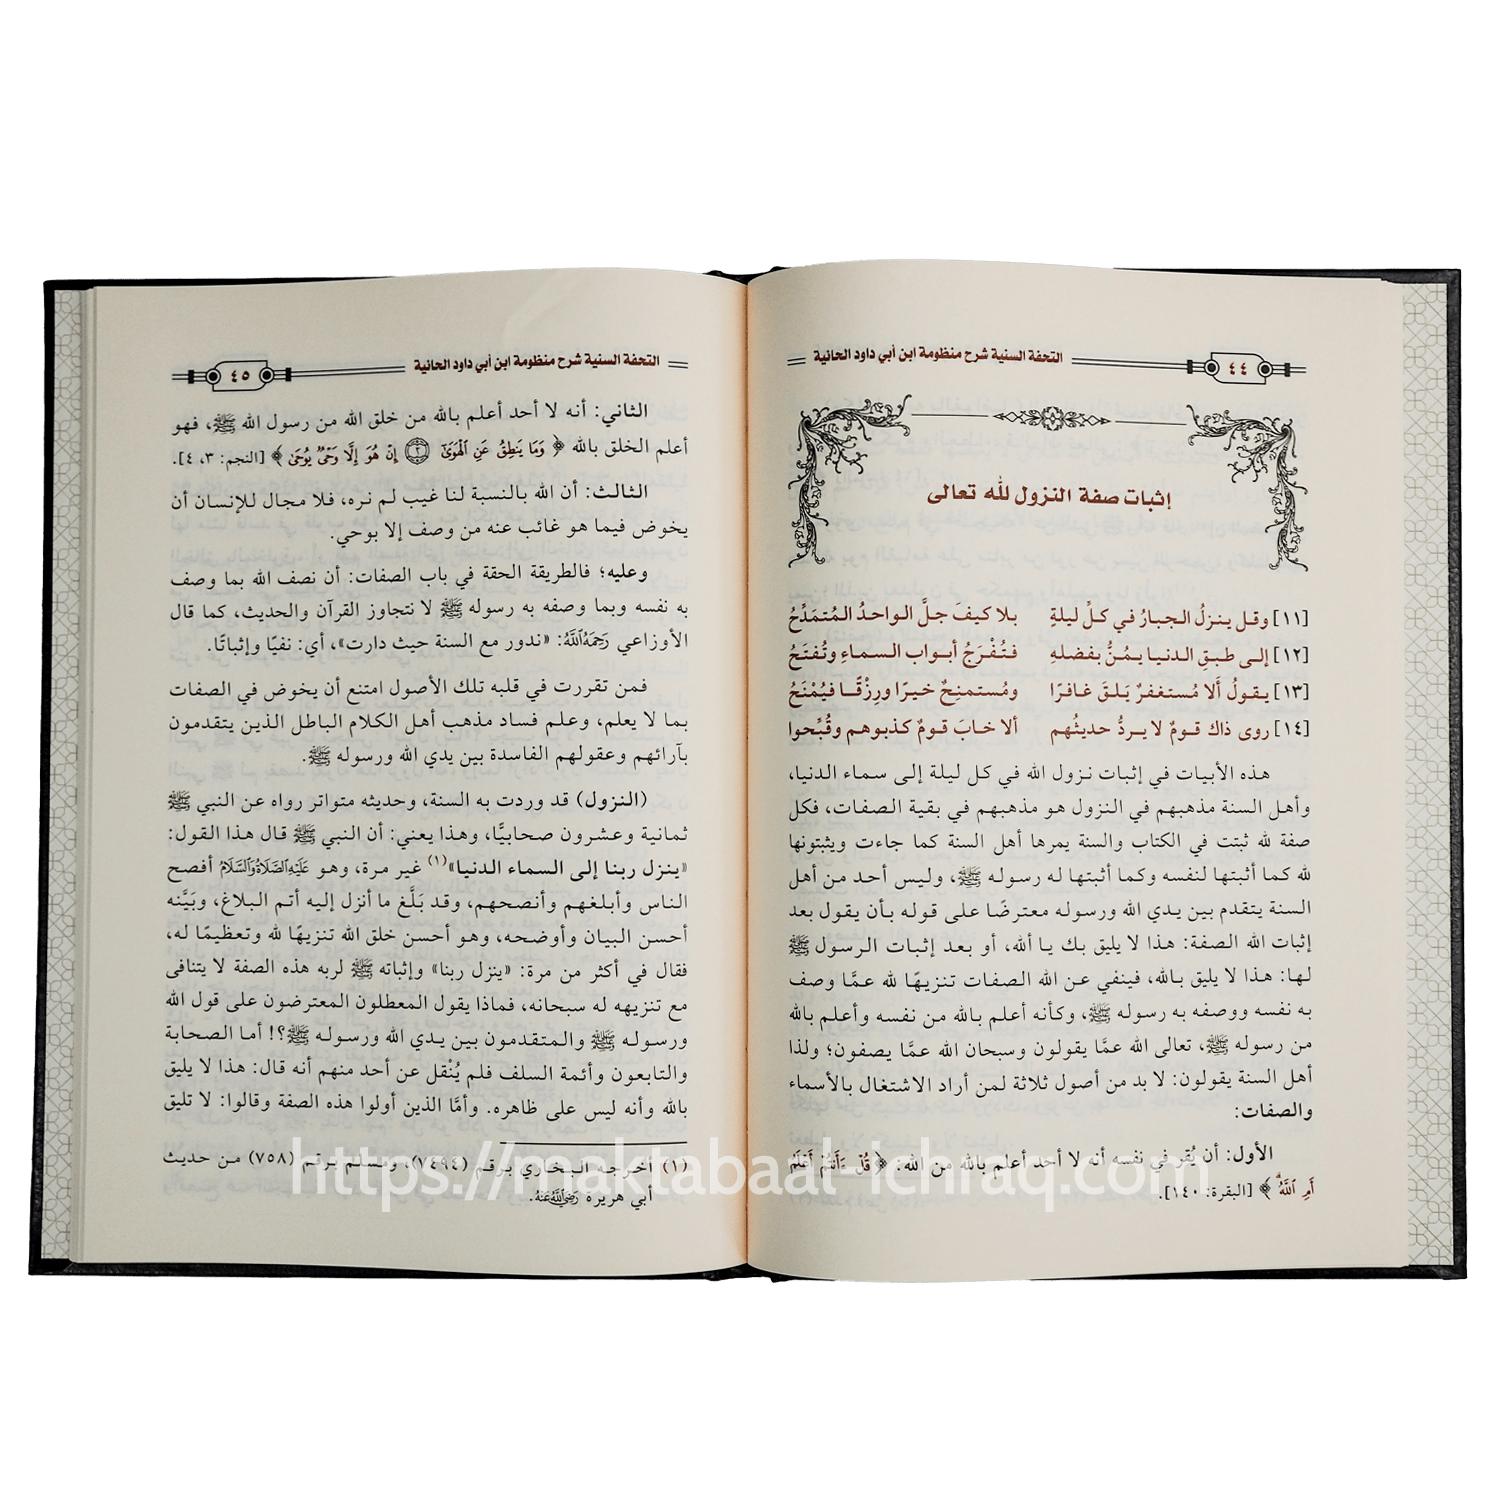 ٤٤
التحفة السنية شرح منظومة ابن أبي داود الحائية
إثبات صفة النزول لله تعالى
[١١] وقل ينزلُ الجبارُ في كلِّ ليلةٍ بلا كيفَ جلَّ الواحدُ المُتمَدِّحُ
[١٢] إلى طبقِ الدنيا يمُنُّ بفضلهِ فتُفْرَجُ أبواب السماءِ وتُفتَحُ
[١٣] يقولُ ألا مُستغفرٌ يَلقَ غافرًا ومُستمنِحٌ خيرًا ورِزْقًا فيُمْنَحُ
[١٤] روى ذاك قومٌ لا يردُّ حديثُهم ألا خابَ قومٌ كذبوهم وقُبِّحوا
هذه الأبيات في إثبات نزول الله في كل ليلة إلى سماء الدنيا،
وأهل السنة مذهبهم في النزول هو مذهبهم في بقية الصفات، فكل
صفة لله ثبتت في الكتاب والسنة يمرها أهل السنة كما جاءت ويثبتونها
لله كما أثبتها لنفسه وكما أثبتها له رسوله ﷺ، وليس أحد من أهل
السنة يتقدم بين يدي الله ورسوله معترضًا على قوله بأن يقول بعد
إثبات الله الصفة: هذا لا يليق بك يا ألله، أو بعد إثبات الرسول ﷺ
لها: هذا لا يليق بالله، فينفي عن الله الصفات تنزيهًا لله عمَّا وصف
به نفسه ووصفه به رسوله ﷺ، وكأنه أعلم بالله من نفسه وأعلم بالله
من رسوله ﷺ، تعالى الله عمَّا يقولون وسبحان الله عمَّا يصفون؛ ولذا
أهل السنة يقولون: لا بد من أصول ثلاثة لمن أراد الاشتغال بالأسماء
والصفات:
الأول: أن يُقر في نفسه أنه لا أحد أعلم بالله من الله: ﴿ قُلْ ءَأَنتُمْ أَعْلَمُ
أَمِ ٱللَّهُ ﴾ [البقرة: ١٤٠].
التحفة السنية شرح منظومة ابن أبي داود الحائية
٤٥
الثاني: أنه لا أحد أعلم بالله من خلق الله من رسول الله ﷺ، فهو
أعلم الخلق بالله ﴿ وَمَا يَنطِقُ عَنِ ٱلْهَوَىٰٓ ۝٣ إِنْ هُوَ إِلَّا وَحْىٌ يُوحَىٰ ﴾ [النجم: ٣، ٤].
الثالث: أن الله بالنسبة لنا غيب لم نره، فلا مجال للإنسان أن
يخوض فيما هو غائب عنه من وصف إلا بوحي.
وعليه؛ فالطريقة الحقة في باب الصفات: أن نصف الله بما وصف
به نفسه وبما وصفه به رسوله ﷺ لا نتجاوز القرآن والحديث، كما قال
الأوزاعي رَحِمَهُ ٱللَّهُ: «ندور مع السنة حيث دارت»، أي: نفيًا وإثباتًا.
فمن تقررت في قلبه تلك الأصول امتنع أن يخوض في الصفات
بما لا يعلم، وعلم فساد مذهب أهل الكلام الباطل الذين يتقدمون
بآرائهم وعقولهم الفاسدة بين يدي الله ورسوله ﷺ.
(النزول) قد وردت به السنة، وحديثه متواتر رواه عن النبي ﷺ
ثمانية وعشرون صحابيًّا، وهذا يعني: أن النبي ﷺ قال هذا القول:
«ينزل ربنا إلى السماء الدنيا»(١) غير مرة، وهو عَلَيْهِ ٱلصَّلَاةُ وَٱلسَّلَامُ أفصح
الناس وأبلغهم وأنصحهم، وقد بَلَّغ ما أنزل إليه أتم البلاغ، وبَيَّنه
أحسن البيان وأوضحه، وهو أحسن خلق الله تنزيهًا لله وتعظيمًا له،
فقال في أكثر من مرة: «ينزل ربنا» وإثباته ﷺ لربه هذه الصفة لا يتنافى
مع تنزيهه له سبحانه، فماذا يقول المعطلون المعترضون على قول الله
ورسوله ﷺ والمتقدمون بين يدي الله ورسوله ﷺ؟! أما الصحابة
والتابعون وأئمة السلف فلم يُنْقل عن أحد منهم أنه قال: هذا لا يليق
بالله وأنه ليس على ظاهره. وأمَّا الذين أولوا هذه الصفة وقالوا: لا تليق
(١) أخرجه البخاري برقم (٧٤٩٤)، ومسلم برقم (٧٥٨) من حديث
أبي هريرة رَضِيَ ٱللَّهُ عَنْهُ.
https://maktabaal-ichraq.com